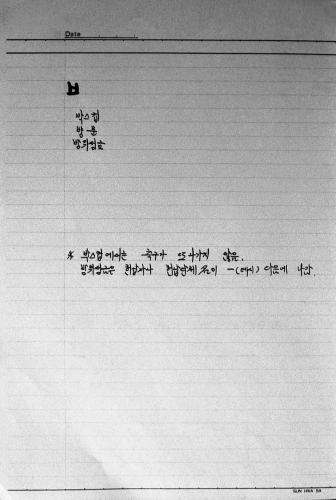 Date
ㅂ
박스컵
방 - 론
방위성금
※ 박스컵에이는 축구가 따라가지 않음.
방위성금은 헌납자나 헌납단체 名이 -(대시) 다음에 나감.
SUN HWA SA